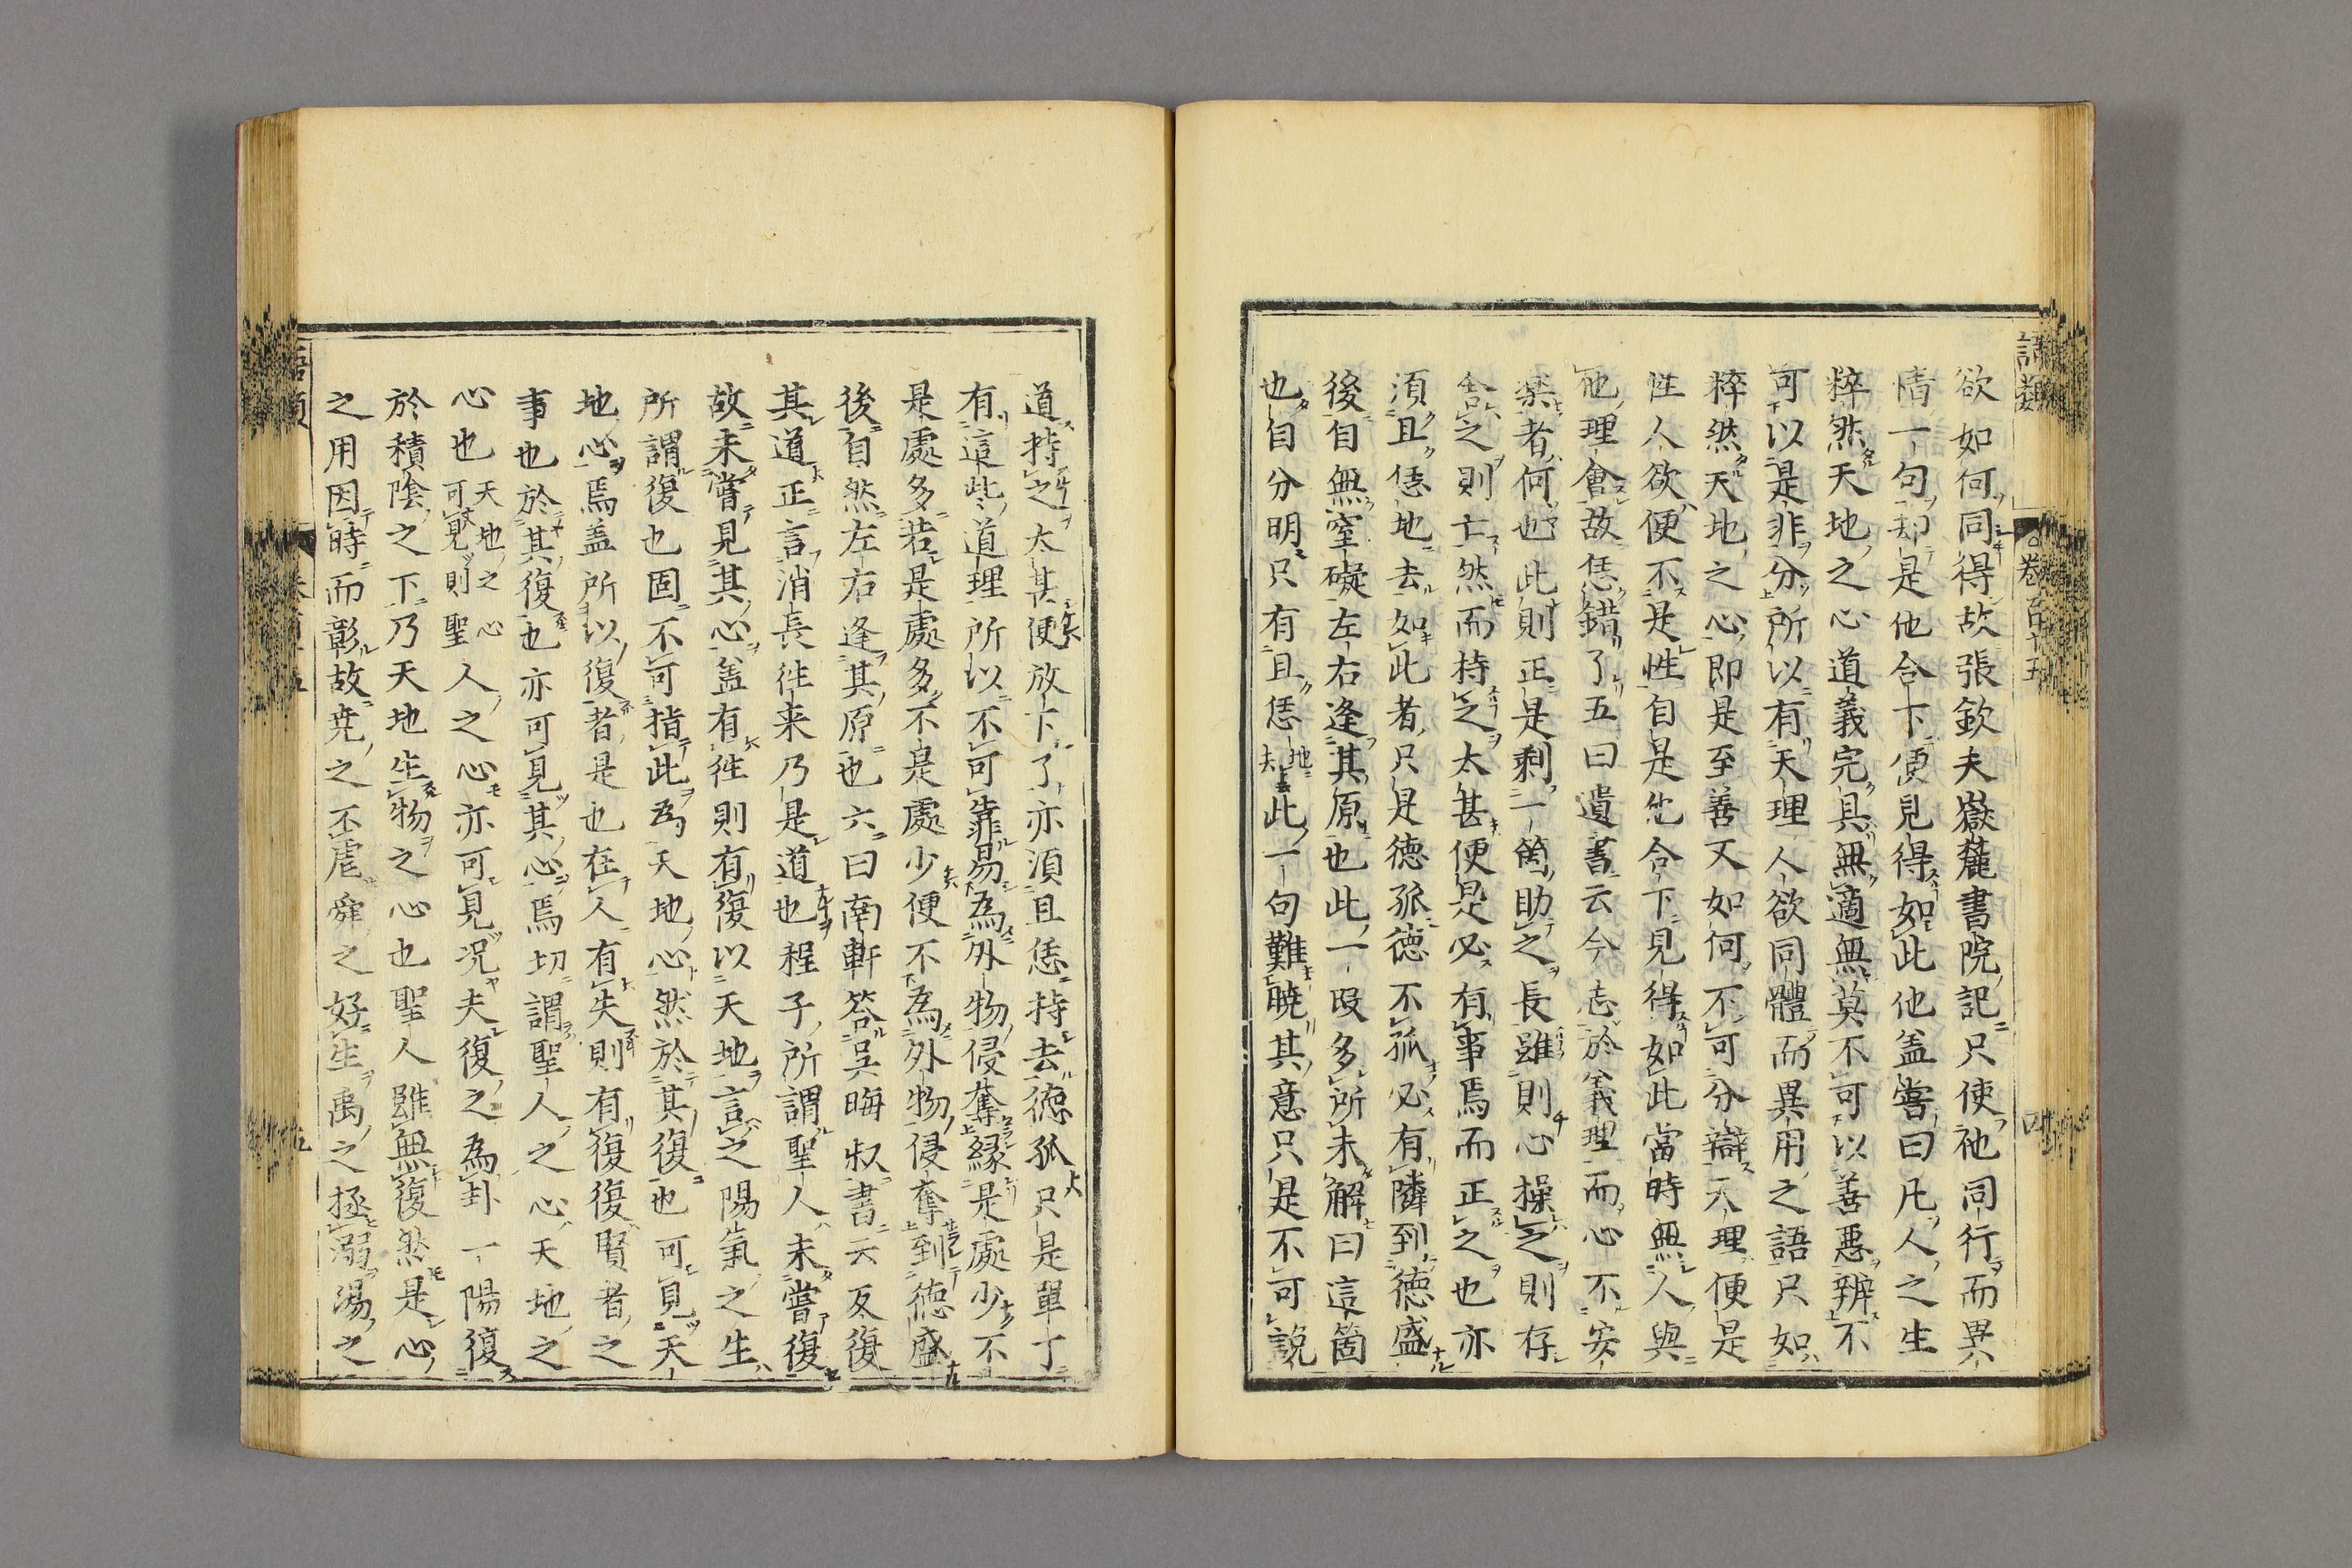 語類 卷百十五 四
欲如何同得故張欽夫嶽麓書院記只使他同行而異
情一句却是他合下便見得如此他盖嘗曰凡人之生
粹然天地之心道義完具無適無莫不可以善惡辨不
可以是非分所以有天理人欲同體而異用之語只如
粹然天地之心即是至善又如何不可分辯天理便是
性人欲便不是性自是他合下見得如此當時無人與
他理會故恁錯了五曰遺書云今志於義理而心不安
樂者何也此則正是剩一箇助之長雖則心操之則存
舍之則亡然而持之太甚便是必有事焉而正之也亦
須且恁地去如此者只是徳孤徳不孤必有隣到徳盛
後自無窒礙左右逢其原也此一叚多所未解曰這箇
也自分明只有且恁地去此一句難曉其意只是不可說
道持之太甚便放下了亦須且恁持去徳孤只是單丁
有這些道理所以不可靠易為外物侵奪縁是處少不
是處多若是處多不是處少便不為外物侵奪到徳盛
後自然左右逢其原也六曰南軒答吳晦叔書云反復
其道正言消長徃来乃是道也程子所謂聖人未嘗復
故未嘗見其心盖有徃則有復以天地言之陽氣之生
所謂復也固不可指此為天地心然於其復也可見天
地心焉盖所以復者是也在人有失則有復復賢者之
事也於其復也亦可見其心焉切謂聖人之心天地之
心也天地之心可見則聖人之心亦可見况夫復之為卦一陽復
於積陰之下乃天地生物之心也聖人雖無復然是心
之用因時而彰故尭之不虐舜之好生禹之拯溺湯之